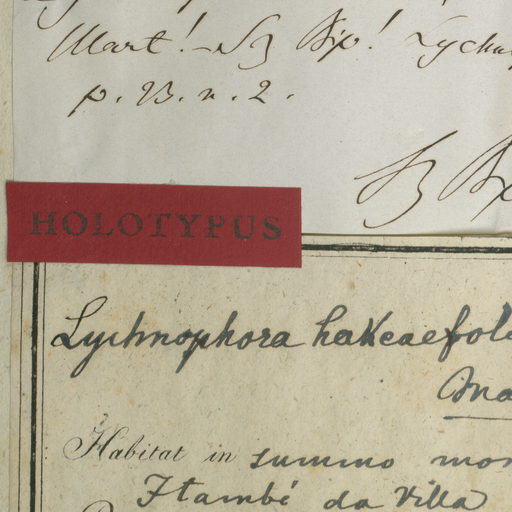 Mart! – Sz Bip! Lychn
p. 23. n. 2.
Sz Bip
HOLOTYPUS
Lychnophora hakeaefoli
Ma
Habitat in summo mon
Itambé da Villa